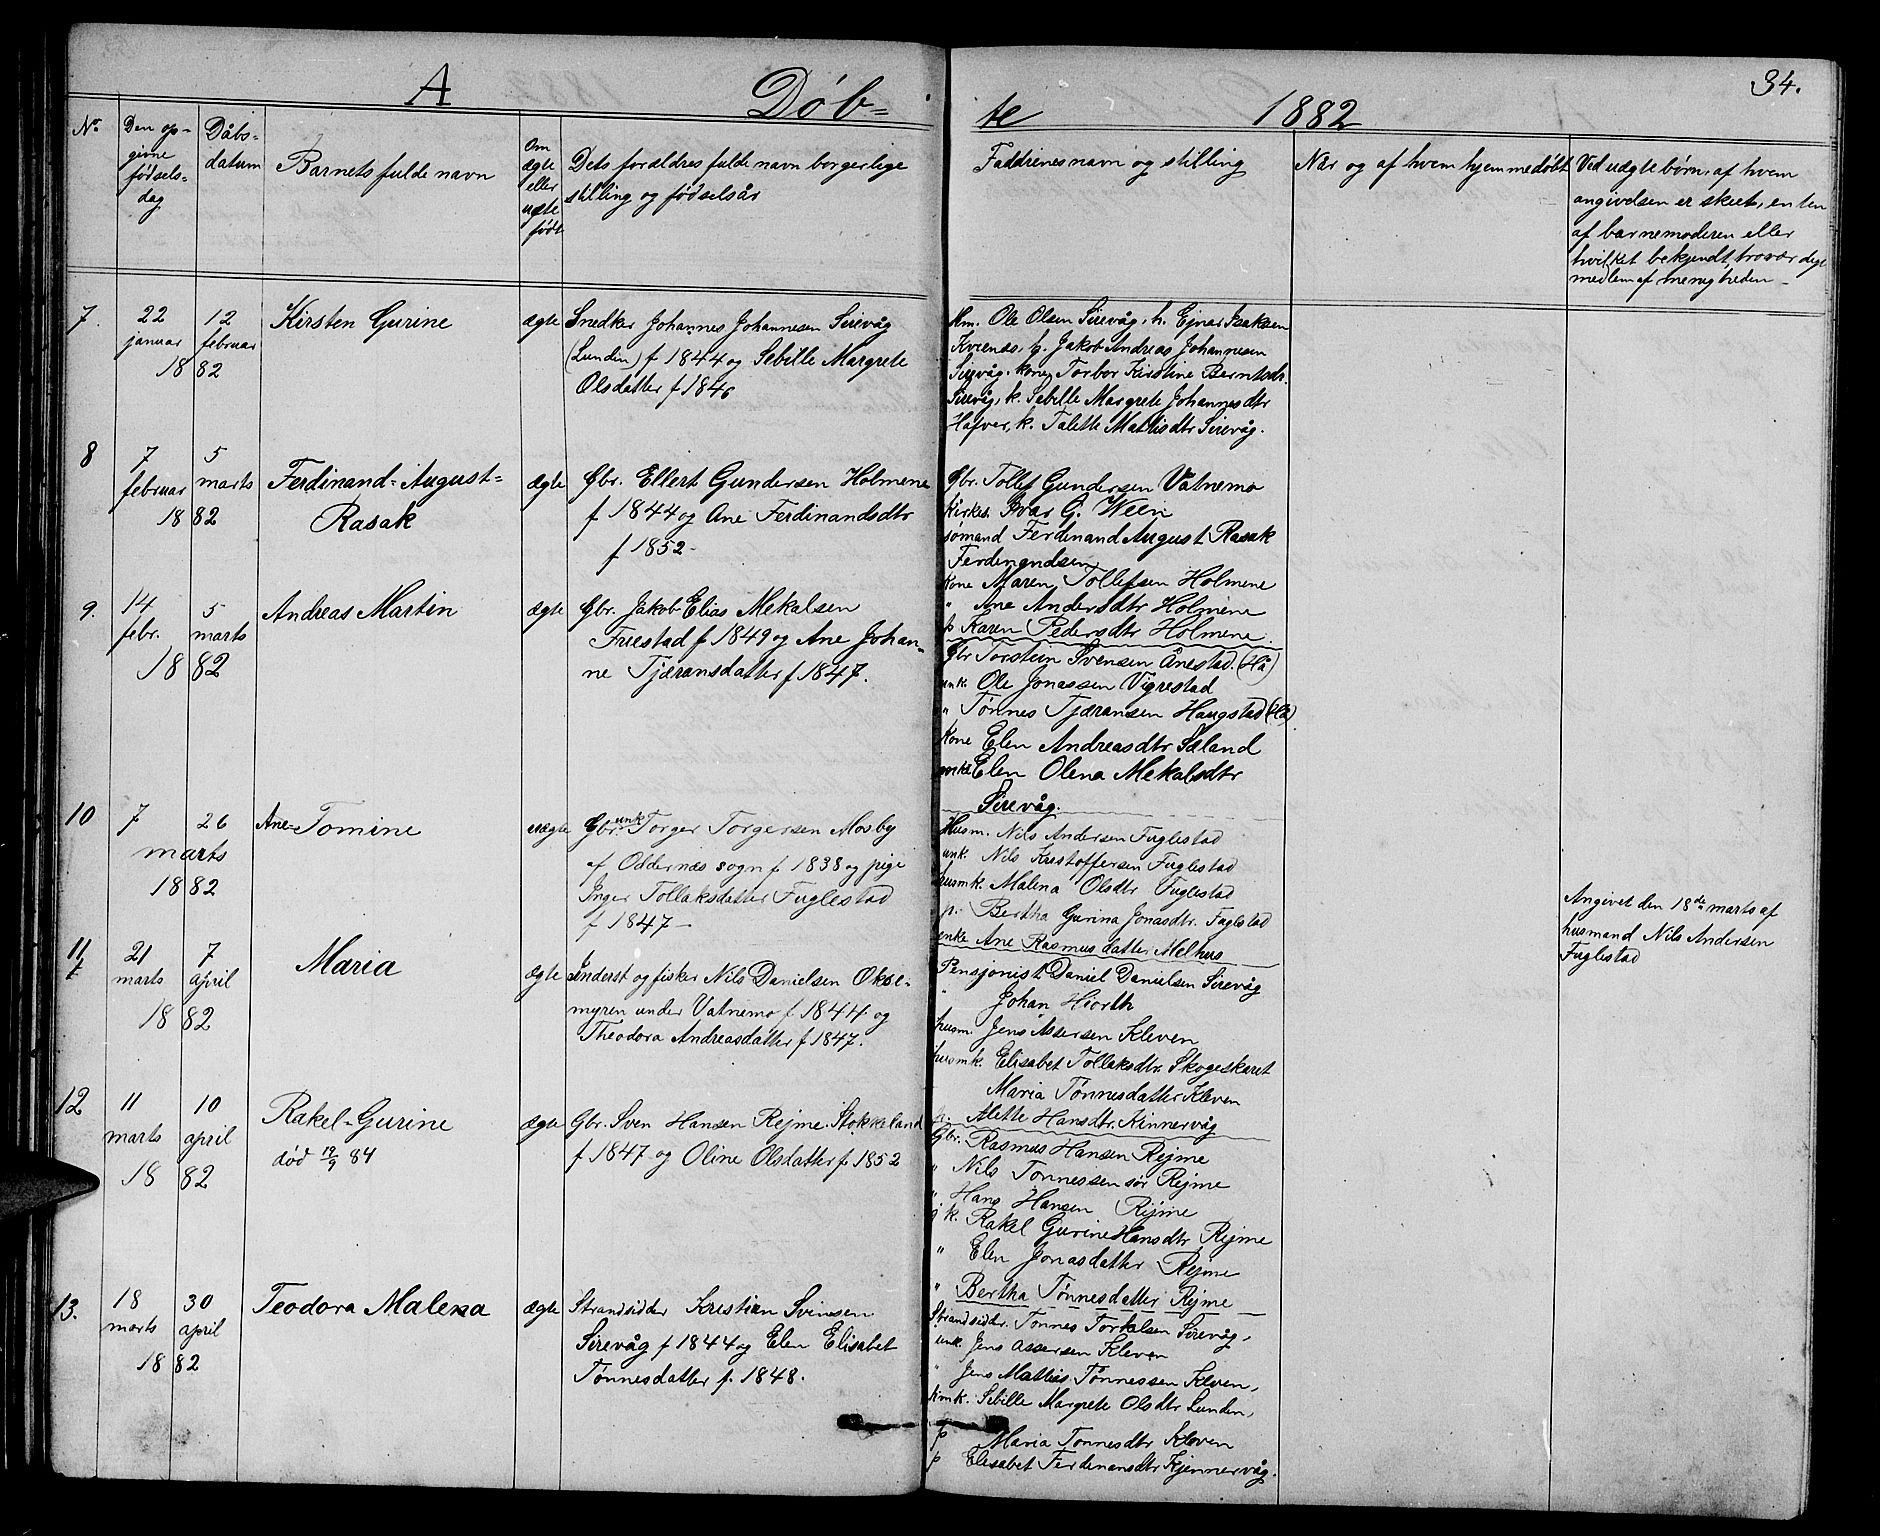 A Døb= te 1882 34.
No.
Den op-
givne
fødsels-
dag
Dåbs-
datum
Barnets fulde navn
Om
ægte
eller
uægte
født
Dets forældres fulde navn borgerlige
stilling og fødselsår
Faddrenes navn og stilling
Når og af hvem hjemmedøbt
Ved uægte børn, af hvem
angivelsen er skeet, enten
af barnemoderen eller
hvilket bekjendt, troværdigt
medlem af menigheden -
7. 22
januar
12
februar
1882
Kirsten Gurine
ægte
Snedker Johannes Johannesen Sirevåg
(Lunden) f 1844 og Sebille Margrete
Olsdatter f 1846
Hm. Ole Olsen Sirevåg, h. Ejnar Isaksen
Jakob Andreas Johannesen
Sirevåg. kone Torbor Kirstine Berntsdr.
Sirevåg, k. Sebille Margrete Johannesdtr
k. Talette Mathisdtr Sirevåg.
8 7
februar
5
marts
1882
Ferdinand-August=
Rasak
ægte
Gbr. Ellert Gundersen Holmene
f 1844 og Ane Ferdinandsdtr
f 1852 -
Gbr. Tollef Gundersen Vatnemo
Kirkes. Ivar G. Wein
sømand Ferdinand August Rasak
Ferdinandsen
kone Maren Tollefsen Holmene
" Ane Andersdtr Holmene
p Karen Pedersdtr Holmene.
9. 14
febr.
5
marts
1882
Andreas Martin
ægte
Gbr. Jakob Elias Mekalsen
Fuestad f 1849 og Ane Johan-
ne Tjæransdatter f 1847.
Gbr Torstein Svensen Ånestad. (Hå)
unk. Ole Jonassen Vigrestad
" Tønnes Tjæransen Haugstad (Hå)
kone Elen Andreasdtr Sæland
enke Elen Olena Mekalsdtr
Sirevåg.
10 7 26
marts
1882
Ane-Tomine
uægte
Gbr. unk Torger Torgersen Mosby
af Oddernæs sogn f 1838 og pige
Inger Tollaksdatter Fuglestad
f 1847 -
Husm. Nils Andersen Fuglestad
unk. Nils Kristoffersen Fuglestad
husmk. Malena Olsdtr Fuglestad
p. Bertha Gurina Jonasdtr. Fuglestad
enke Ane Rasmusdatter Melhus
Angivet den 18de marts af
husmand Nils Andersen
Fuglestad
11 21
marts
7
april
1882
Maria
ægte
Inderst og fisker Nils Danielsen Okse-
myren under Vatnemo f 1844 og
Theodora Andreasdatter f 1847.
Pensjonist Daniel Danielsen Sirevåg
" Johan Hiorth
husm. Jens Assersen Kleven
husmk. Elisabet Tollaksdtr. Skogeskaret
Maria Tønnesdatter Kleven
p. Alette Hansdtr. Kinnervåg
12 11
marts
10
april
1882
Rakel-Gurine
død 19/9 84
ægte
Gbr. Sven Hansen Rejme Stokkeland
f 1847 og Oline Olsdatter f 1852
Gbr. Rasmus Hansen Rejme
" Nils Tønnessen sør Rejme
" Hans Hansen Rejme
g k. Rakel Gurine Hansdtr Rejme
" Elen Jonasdatter Rejme
" Bertha Tønnesdatter Rejme
13. 18
marts
30
april
1882
Teodora Malena
ægte
Strandsidder Kristian Svensen
Sirevåg f 1844 og Elen Elisabet
Tønnesdatter f. 1848.
Strandsidder. Tønnes Torkalsen Sirevåg,
unk. Jens Assersen Kleven
" Jens Mathis Tønnessen Kleven,
Sebille Margrete Olsdtr Lunden,
p Maria Tønnesdtr Kleven
p Elisabet Ferdinansdtr Kjennervåg.